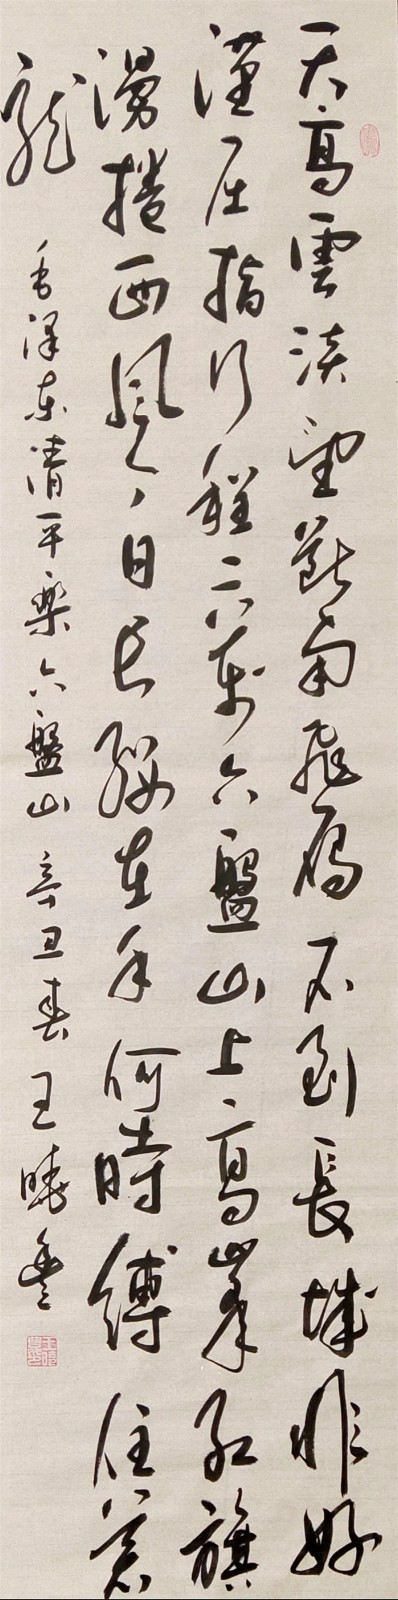 天高雲淡望斷南飛雁不到長城非好
漢屈指行程二萬六盤山上高峯紅旗
漫捲西風今日長纓在手何時縛住蒼
龍
毛澤東清平樂六盤山 辛丑春王曉